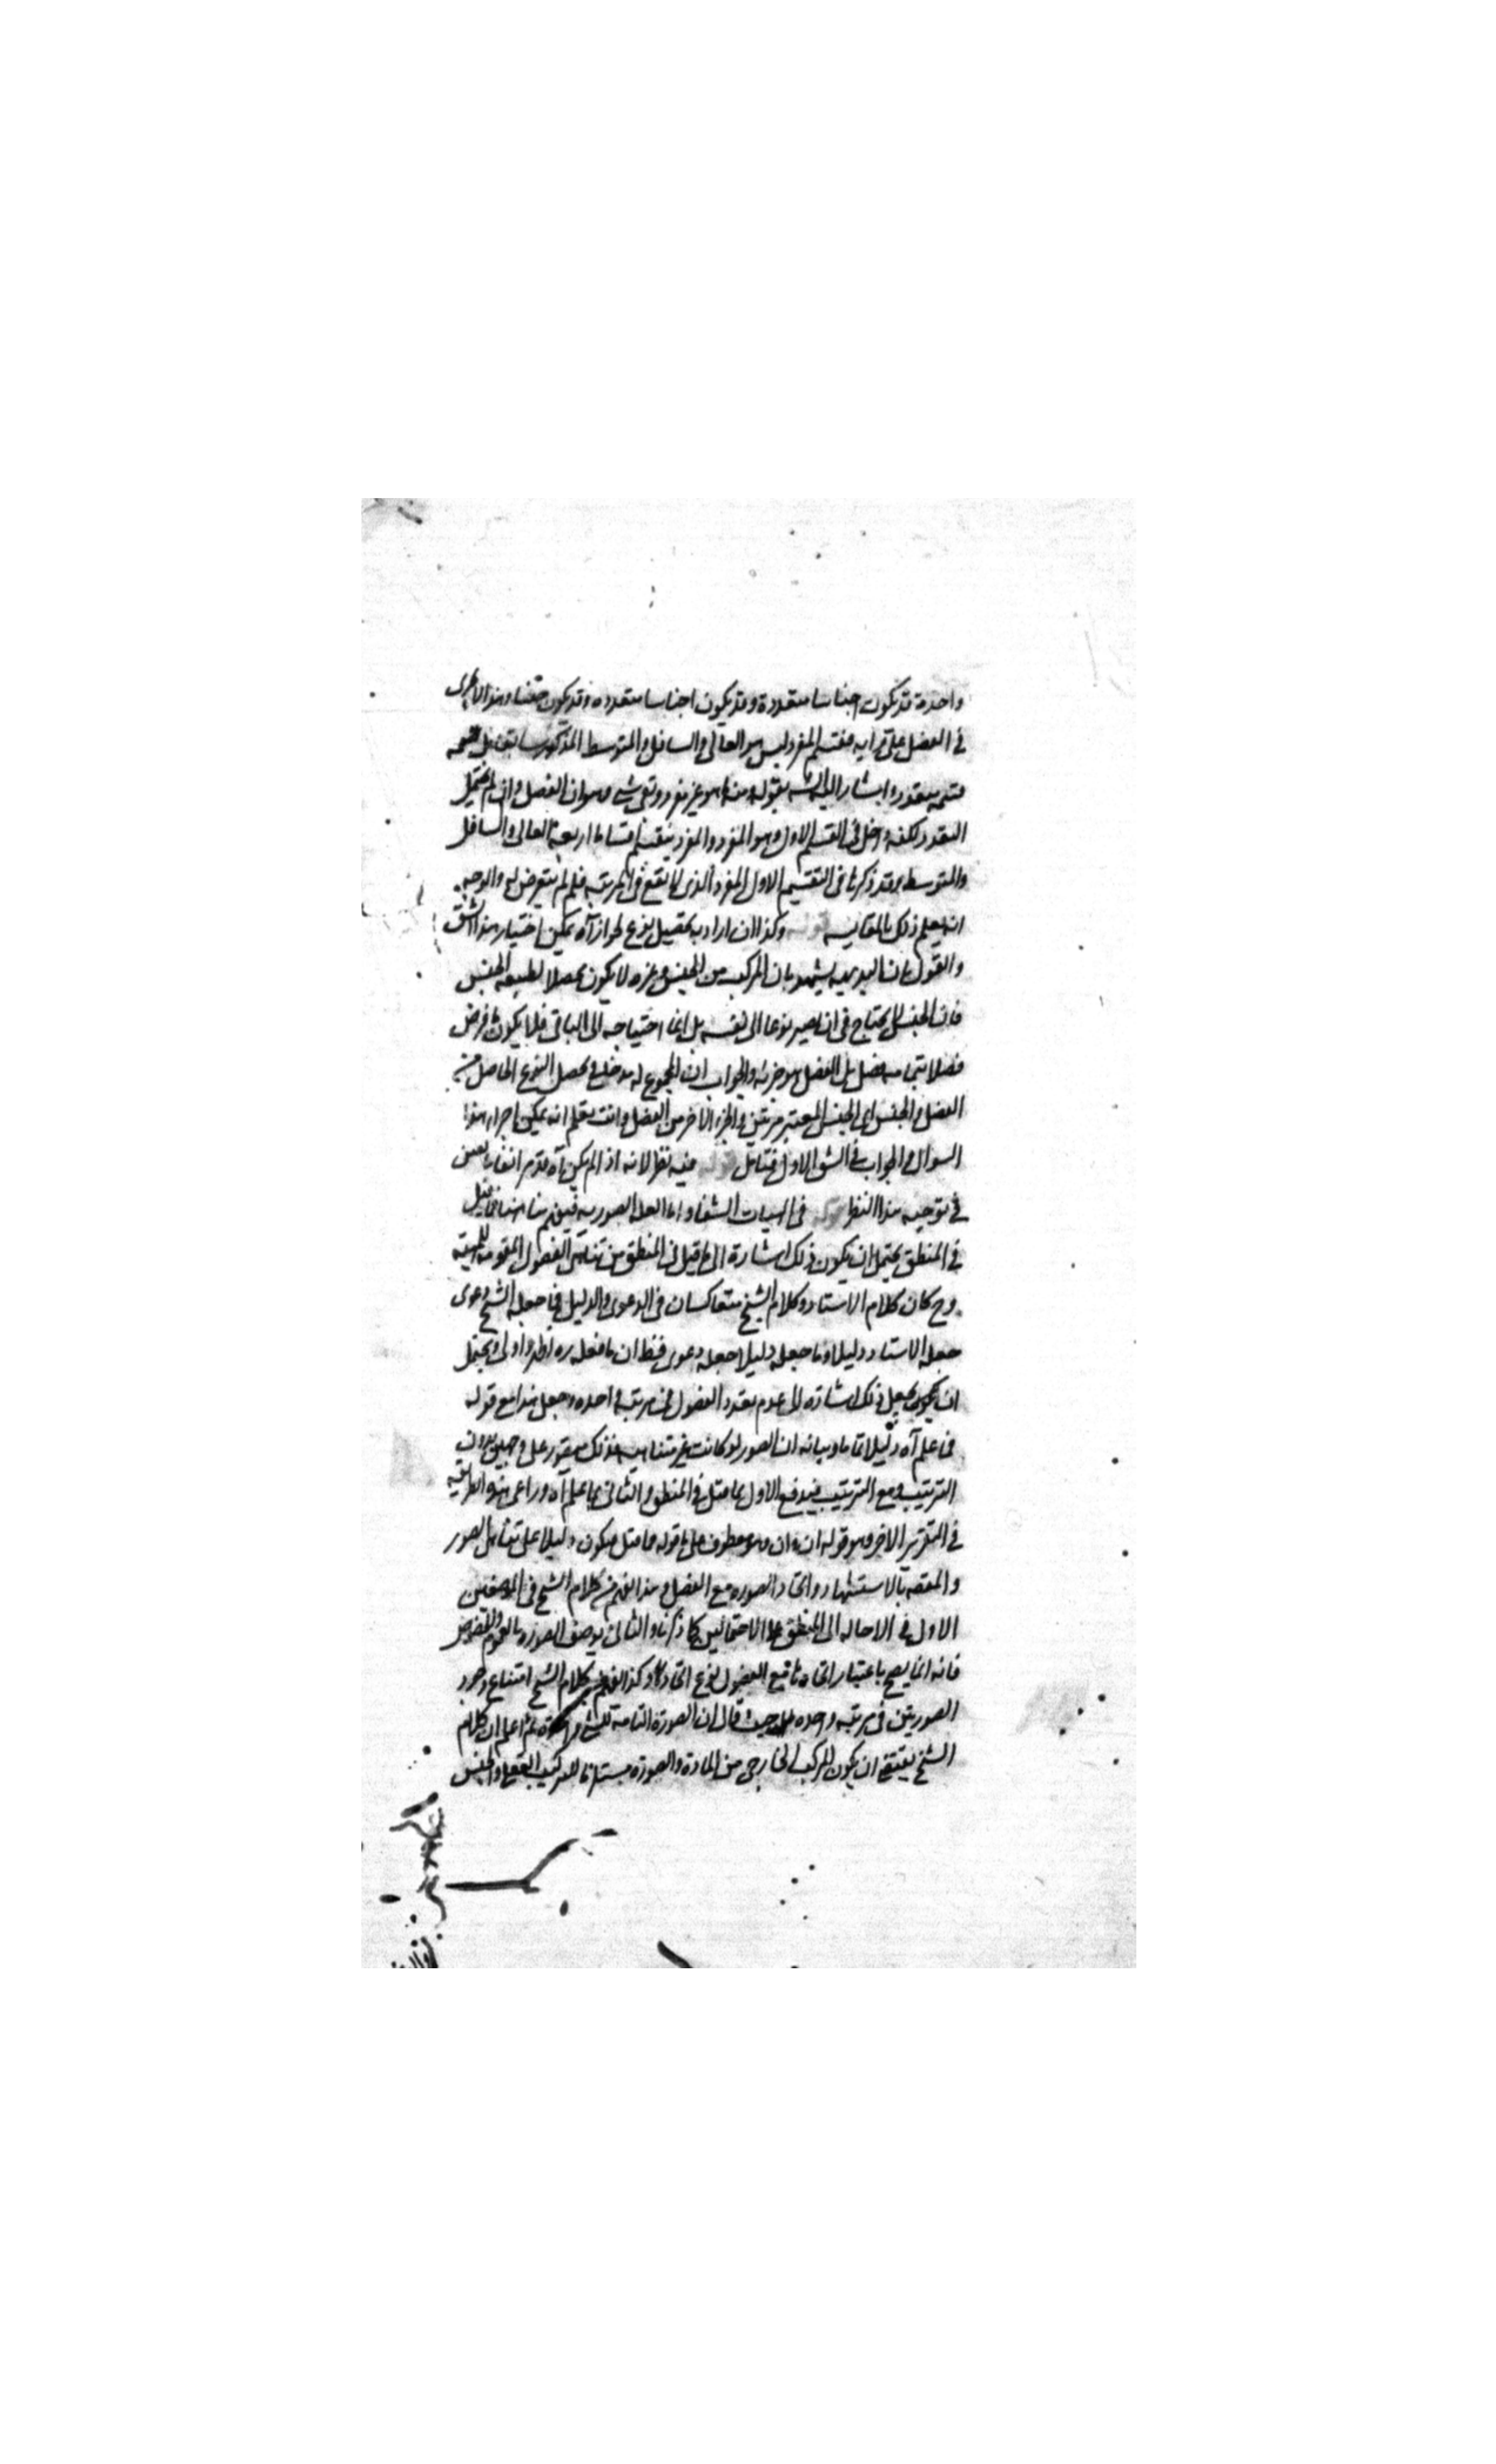 واحدة قد يكون اجناسا متعددة وقد يكون اجناسا متعدده وقد يكون جنسا وهذا لا يجرى
في الفصل على رايه فقسم المفرد ليس هو العالى والسافل والمتوسط المذكور سابقا بل قسمه
قسمه متعدد واشار اليه الش بقوله ومنه ما هو غير مفرد وبقى شىء وهو ان الفصل وان لم يحتمل
التعدد لكنه داخل في القسم الاول وهو المفرد والمفرد ينقسم اقساما اربعة العالى والسافل
والمتوسط وقد ذكرنا فى التقسيم الاول المفرد الذى لا يقع فى المرتبه فلم لم يتعرض له والوجه
انه يعلم ذلك بالمقايسه قوله وكذا ان اراد به تحصيل نوع لجواز آه يمكن اختيار هذا الشق
والقول بان البديهه يشهد بان المركب من الجنس وغيره لا يكون محصلا لطبيعه الجنس
فان الجنس لا يحتاج فى ان يصير نوعا الى نفسه بل انما احتياجه الى الباقى فلا يكون ما فرض
فصلا بتمامه فصل بل الفصل هو جزئه والجواب ان المجموع له مدخل في تحصل النوع الحاصل من
الفصل والجنس اى الجنس المعتبر مرتين والجزء الاخر من الفصل وانت تعلم انه يمكن اجراء هذا
السوال والجواب في الشق الاول فتامل قوله فيه نظر لانه اذا لم يكن آه قدمر انفا ما يعين
في توجيه هذا النظر قوله فى الهيات الشفا واما العلة الصوريه فيفهم تناهيها بما قيل
في المنطق يحتمل ان يكون ذلك اشارة الى ما قيل فى المنطق من تناهى الفصول المقومه للمهيه
وح كان كلام الاستاد وكلام الشيخ متعاكسان فى الدعوى والدليل فما جعله الشيخ دعوى
جعله الاستاد دليلا وما جعله دليلا جعله دعوى فنظ ان ما فعله ره اظهر واولى ويحتمل
ان يكون ذلك اشارة الى عدم تعدد الفصول فى مرتبة واحده وجعل هذا مع قوله
فى علم آه دليلا تاما وبيانه ان الصور لو كانت غير متناهيه فذلك يتصور على وجهين بدون
الترتيب ومع الترتيب فيندفع الاول بما قيل في المنطق والثانى بما علم آه وراعى هذه الطريقه
في التقرير الاخر وهو قوله ان وان وهو معطوف على قوله ما قيل فيكون دليلا على تناهى الصور
والمقصد بالاستشهاد واتحاد الصوره مع الفصل وهذا الفهم من كلام الشيخ فى الموضعين
الاول في الاحاله الى المنطق على الاحتمالين كما ذكرنا والثانى بوصف الصورة بالعموم والخصوص
فانه انما يصح باعتبار اتحاد ما مع الفصول نوع اتحاد وكذا الفهم من كلام الشيخ امتناع وجود
الصورتين فى مرتبه واحده حيث قال ان الصورة التامة للشى واحدة ثم اعلم ان كلام
الشيخ يقتضى ان يكون المركب الخارجى من المادة والصورة مستلزما للتركيب العقلى والجنس